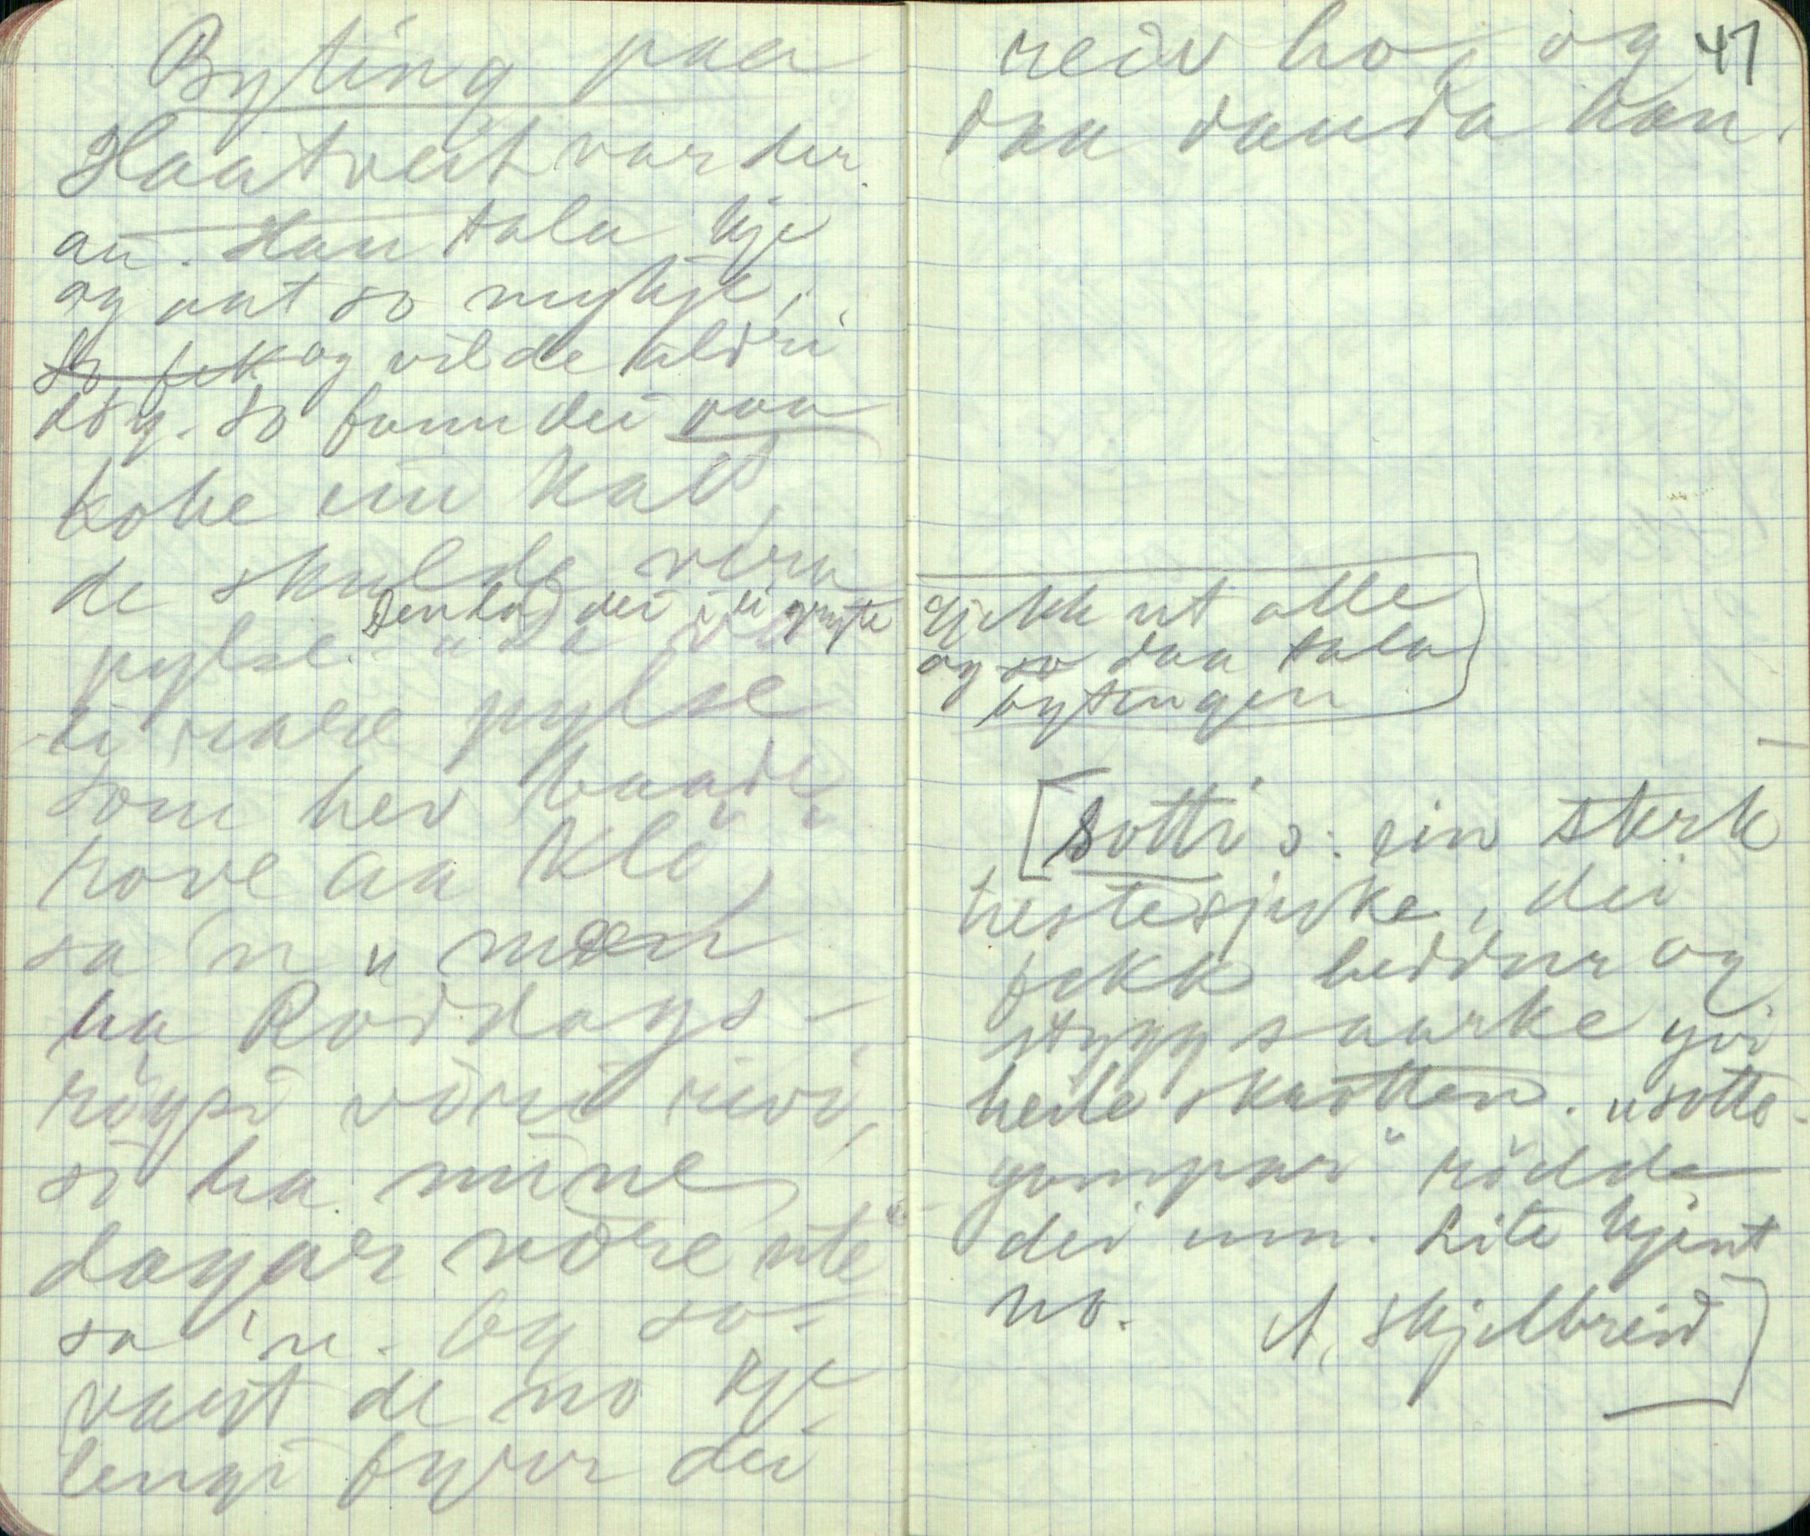 Byting paa
Haatveit var der
ein. Han tala kje
og aat so mykje,
so fek og vilde aldri
döy. So funn dei paa
koke ein katt,
de skulde vera
Den la dei i ei gryte
pylse.
ei rare pylse
som hev baade
rove aa klö,"
sa 'n "
ha Röddags-
vöri rivi,
so ha mine
dagar vöre ute"
sa 'n. Og so
vart de no kje
lengi fyrr dei
47
reiv ho, og
daa dauda han.
Gjekk ut alle
og so daa tala
bytingen
[Sotti ɔ: ein sterk
hestesjuke, dei
fekk beddur og
stygg saarke yvi
heile skrotten. "Sotte-
gampar" rödde
dei um. Lite kjent
no. A. Skjelbreid]